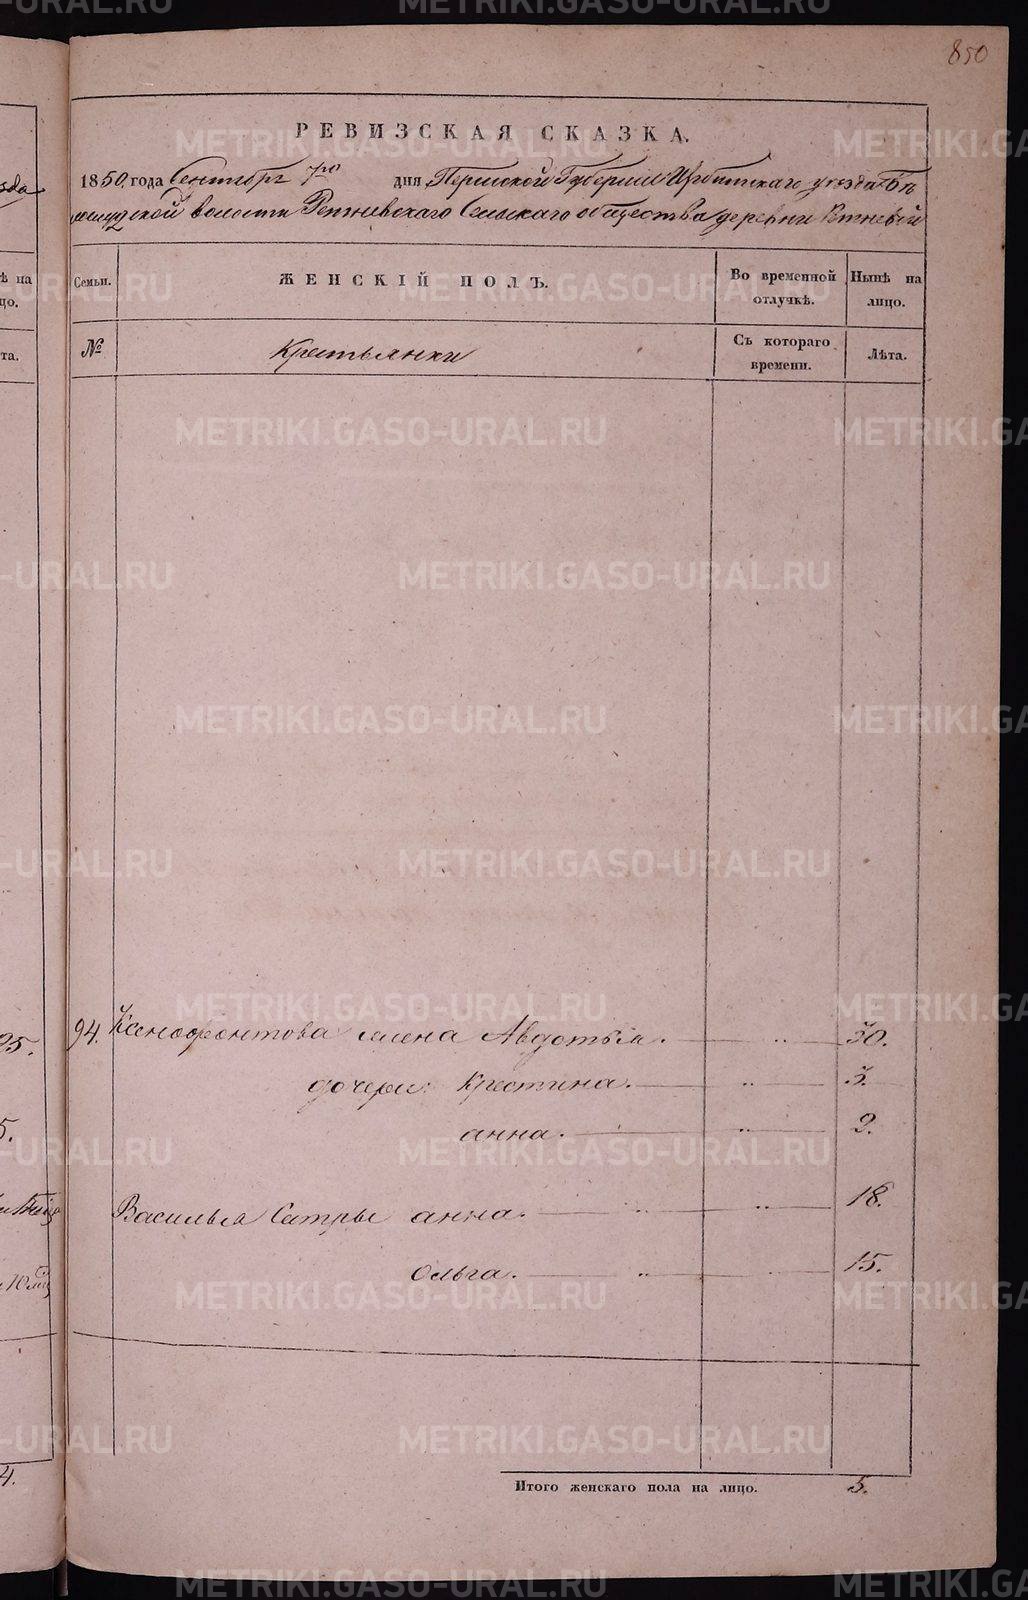 850
РЕВИЗСКАЯ СКАЗКА.
1850. года Сентября 7го дня Пермской Губернии Ирбитскаго уезда Бѣ
лослудской волости Ретневскаго Сельскаго общества деревни Ретневой
Семьи. ЖЕНСКІЙ ПОЛЪ. Во временной отлучкѣ. Нынѣ на лицо.
№ Крестьянки Съ котораго времени. Лѣта.
94. Ксенофонтова жена Авдотья. 30.
дочери: Крестина. 5.
анна. 2.
Василья Сестры анна. 18.
Ольга. 15.
Итого женскаго пола на лицо. 5.
ѣ на
цо.
та.
25.
5.
4.
METRIKI.GASO-URAL.RU